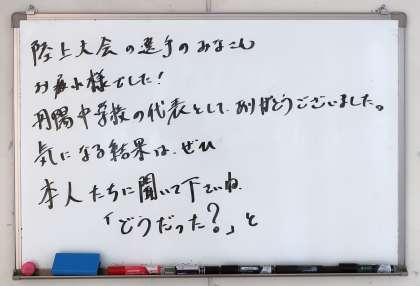 陸上大会の選手のみなさん
お疲れ様でした!
丹陽中学校の代表として、ありがとうございました。
気になる結果は、ぜひ
本人たちに聞いて下さいね、
「どうだった?」と